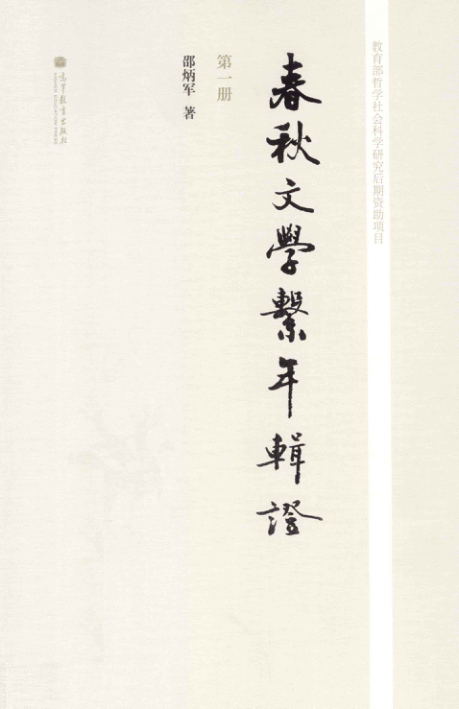 教育部哲学社会科学研究后期资助项目
春秋文學繫年輯證
第一册
邵炳军 著
高等教育出版社
HIGHER EDUCATION PRESS